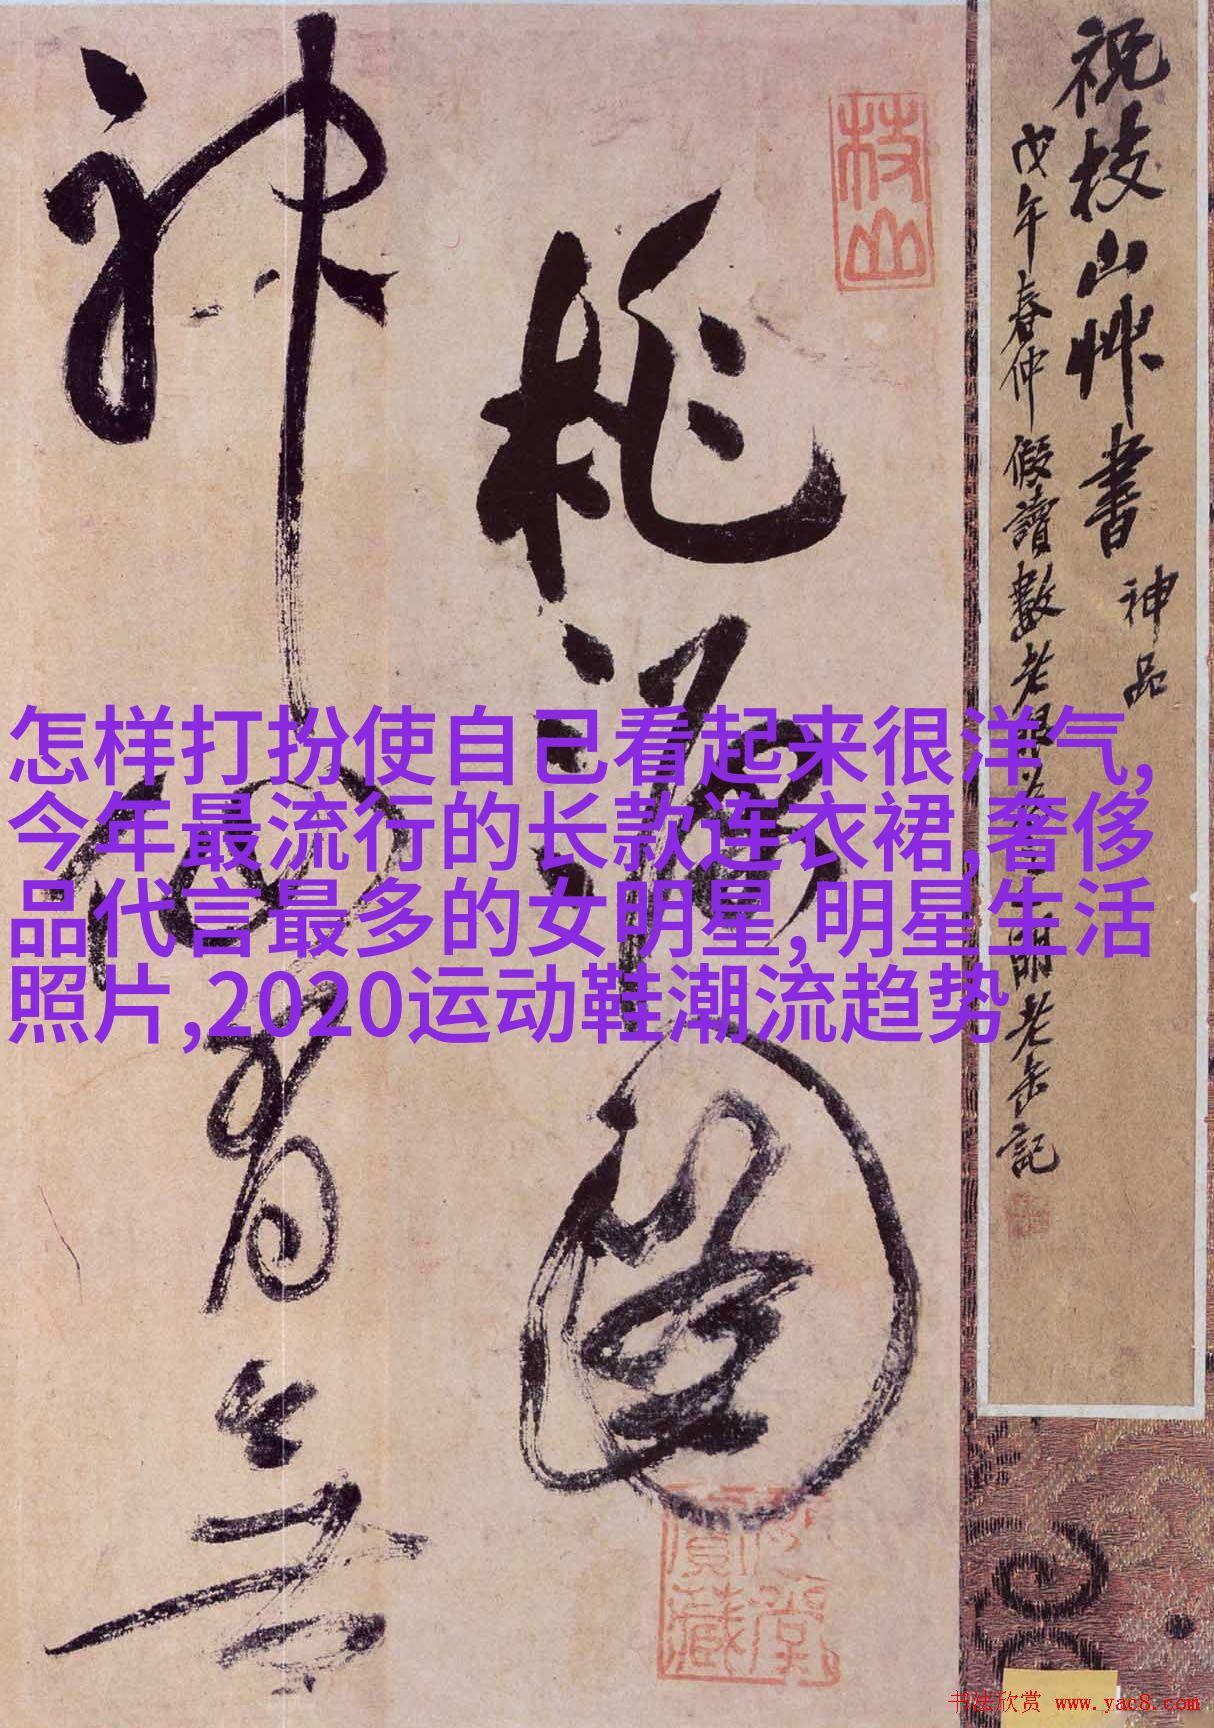 祝枝山艸書 神品
戊午春仲假讀數老眼明老缶記
枝山
桃源圖
神仙有無
怎样打扮使自己看起来很洋气,
今年最流行的长款连衣裙,奢侈
品代言最多的女明星,明星生活
照片,2020运动鞋潮流趋势
书法欣赏 www.yac8.com